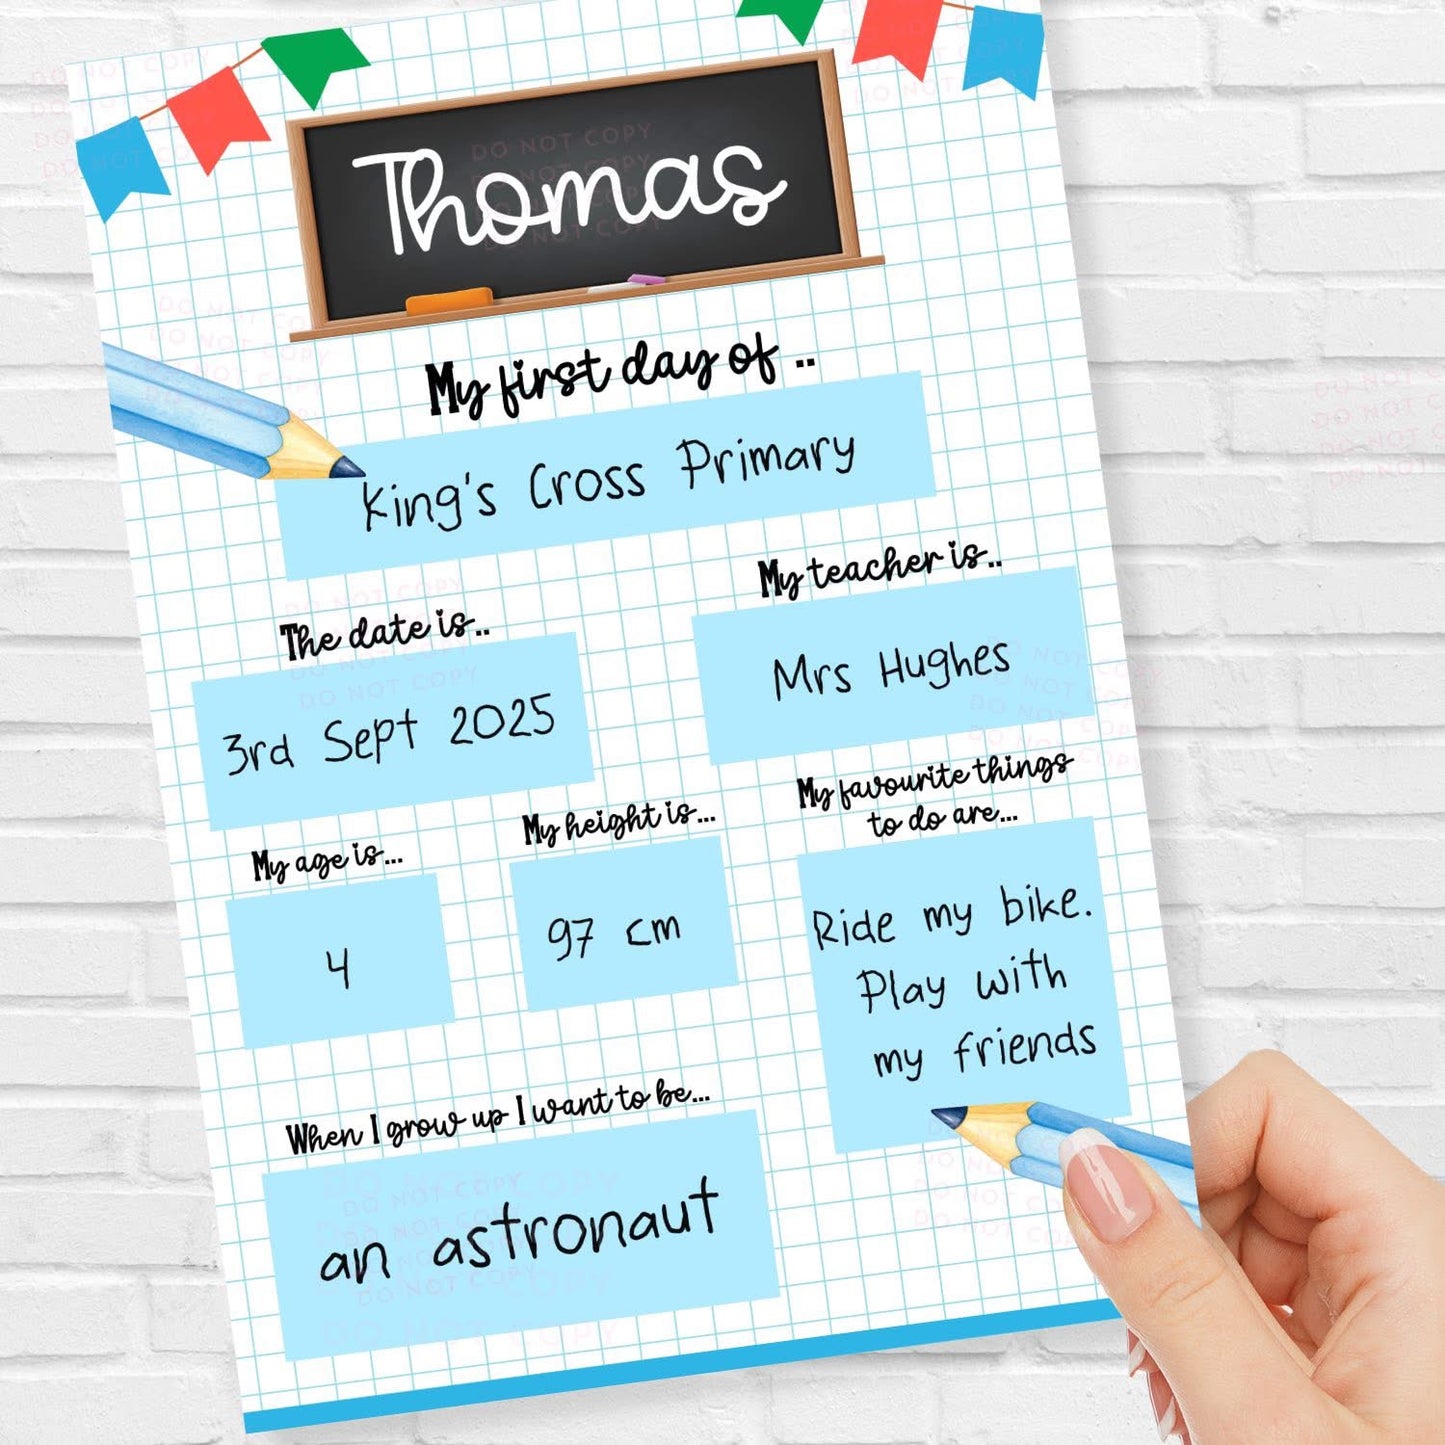 Thomas
My first day of ..
King's Cross Primary
The date is..
3rd Sept 2025
My teacher is..
Mrs Hughes
My age is...
4
My height is...
97 cm
My favourite things
to do are...
Ride my bike.
Play with
my friends
When I grow up I want to be...
an astronaut
DO NOT COPY
DO NOT COPY
DO NOT COPY
DO NOT COPY